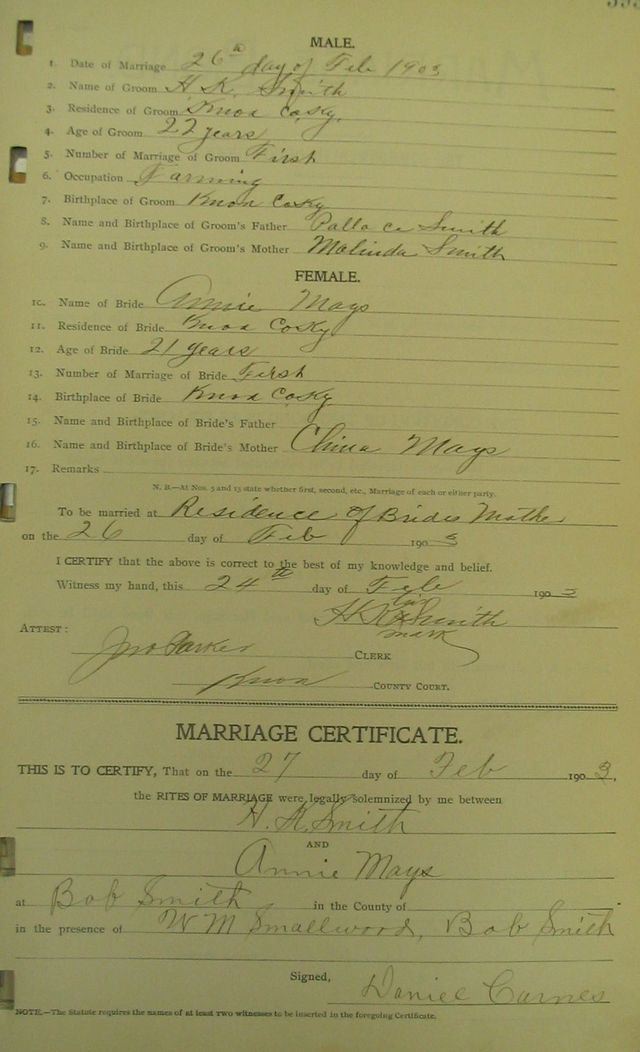 MALE.
1. Date of Marriage 26th day of Feb 1903
2. Name of Groom H K. Smith
3. Residence of Groom Knox Co Ky.
4. Age of Groom 22 years
5. Number of Marriage of Groom First
6. Occupation Farming
7. Birthplace of Groom Knox Co Ky
8. Name and Birthplace of Groom's Father Smith
9. Name and Birthplace of Groom's Mother Malinda Smith
FEMALE.
10. Name of Bride Annie Mays
11. Residence of Bride Knox Co Ky
12. Age of Bride 21 years
13. Number of Marriage of Bride First
14. Birthplace of Bride Knox Co Ky
15. Name and Birthplace of Bride's Father
16. Name and Birthplace of Bride's Mother China Mays
17. Remarks
N. B.—At Nos. 5 and 13 state whether first, second, etc., Marriage of each or either party.
To be married at Residence of Brides Mother
on the 26 day of Feb 1903
I CERTIFY that the above is correct to the best of my knowledge and belief.
Witness my hand, this 24th day of Feb 190
his
H K x Smith
mark
ATTEST:
Jno Parker CLERK
Knox COUNTY COURT.
MARRIAGE CERTIFICATE.
THIS IS TO CERTIFY, That on the 27 day of Feb 1903,
the RITES OF MARRIAGE were legally solemnized by me between
H. K. Smith
AND
Annie Mays
at Bob Smith in the County of
in the presence of W M Smallwood, Bob Smith
Signed,
Daniel Carnes
NOTE.—The Statute requires the names of at least two witnesses to be inserted in the foregoing Certificate.